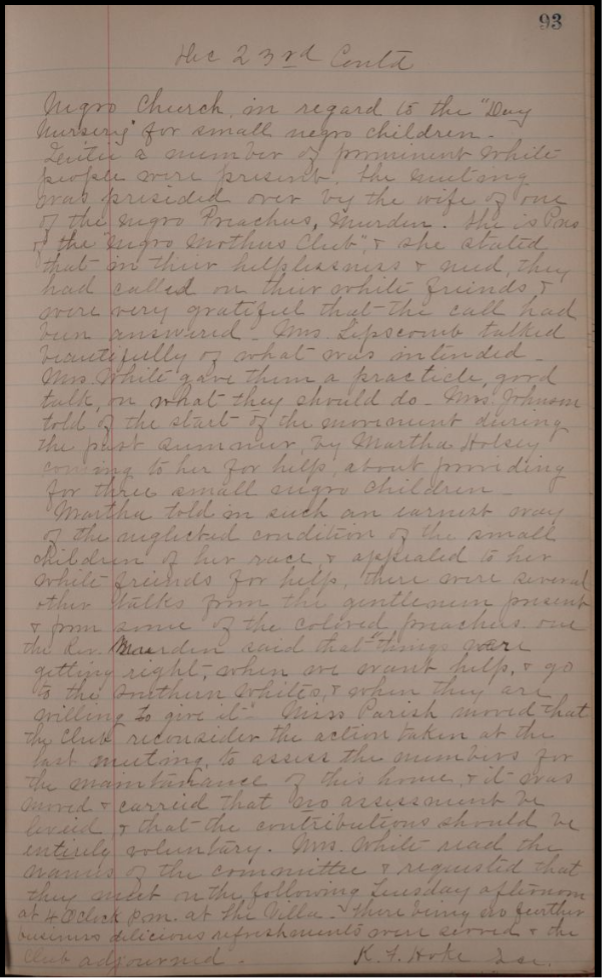 93
Dec 23rd Contd
Negro Church, in regard to the "Day
Nursery" for small negro children -
Quite a number of prominent white
people were present. The meeting
was presided over by the wife of one
of the negro Preachers, Murden. She is Pres
of the "Negro Mothers Club", & she stated
that in their helplessness & need, they
had called on their white friends, &
were very grateful that the call had
been answered - Mrs. Lipscomb talked
beautifully of what was intended -
Mrs. White gave them a practicle, good
talk, on what they should do - Mrs. Johnson
told of the start of the movement during
the past summer, by Martha Holsey
coming to her for help, about providing
for three small negro children -
Martha told in such an earnest way
of the neglected condition of the small
children of her race, & appealed to her
white friends for help, there were several
other talks from the gentlemen present
& from some of the colored preachers. one
the Rev. Murden said that "things were
getting right, when we want help, & go
to the southern whites, & when they are
willing to give it". Miss Parish moved that
the Club reconsider the action taken at the
last meeting, to assess the members for
the maintainance of this home, & it was
moved & carried that no assessment be
levied, & that the contributions should be
entirely voluntary. Mrs. White read the
names of the committee & requested that
they meet on the following Tuesday afternoon
at 4 O'clock P.m. at the Villa - There being no further
business delicious refreshments were served & the
Club adjourned -
K. F. Hoke Sec.